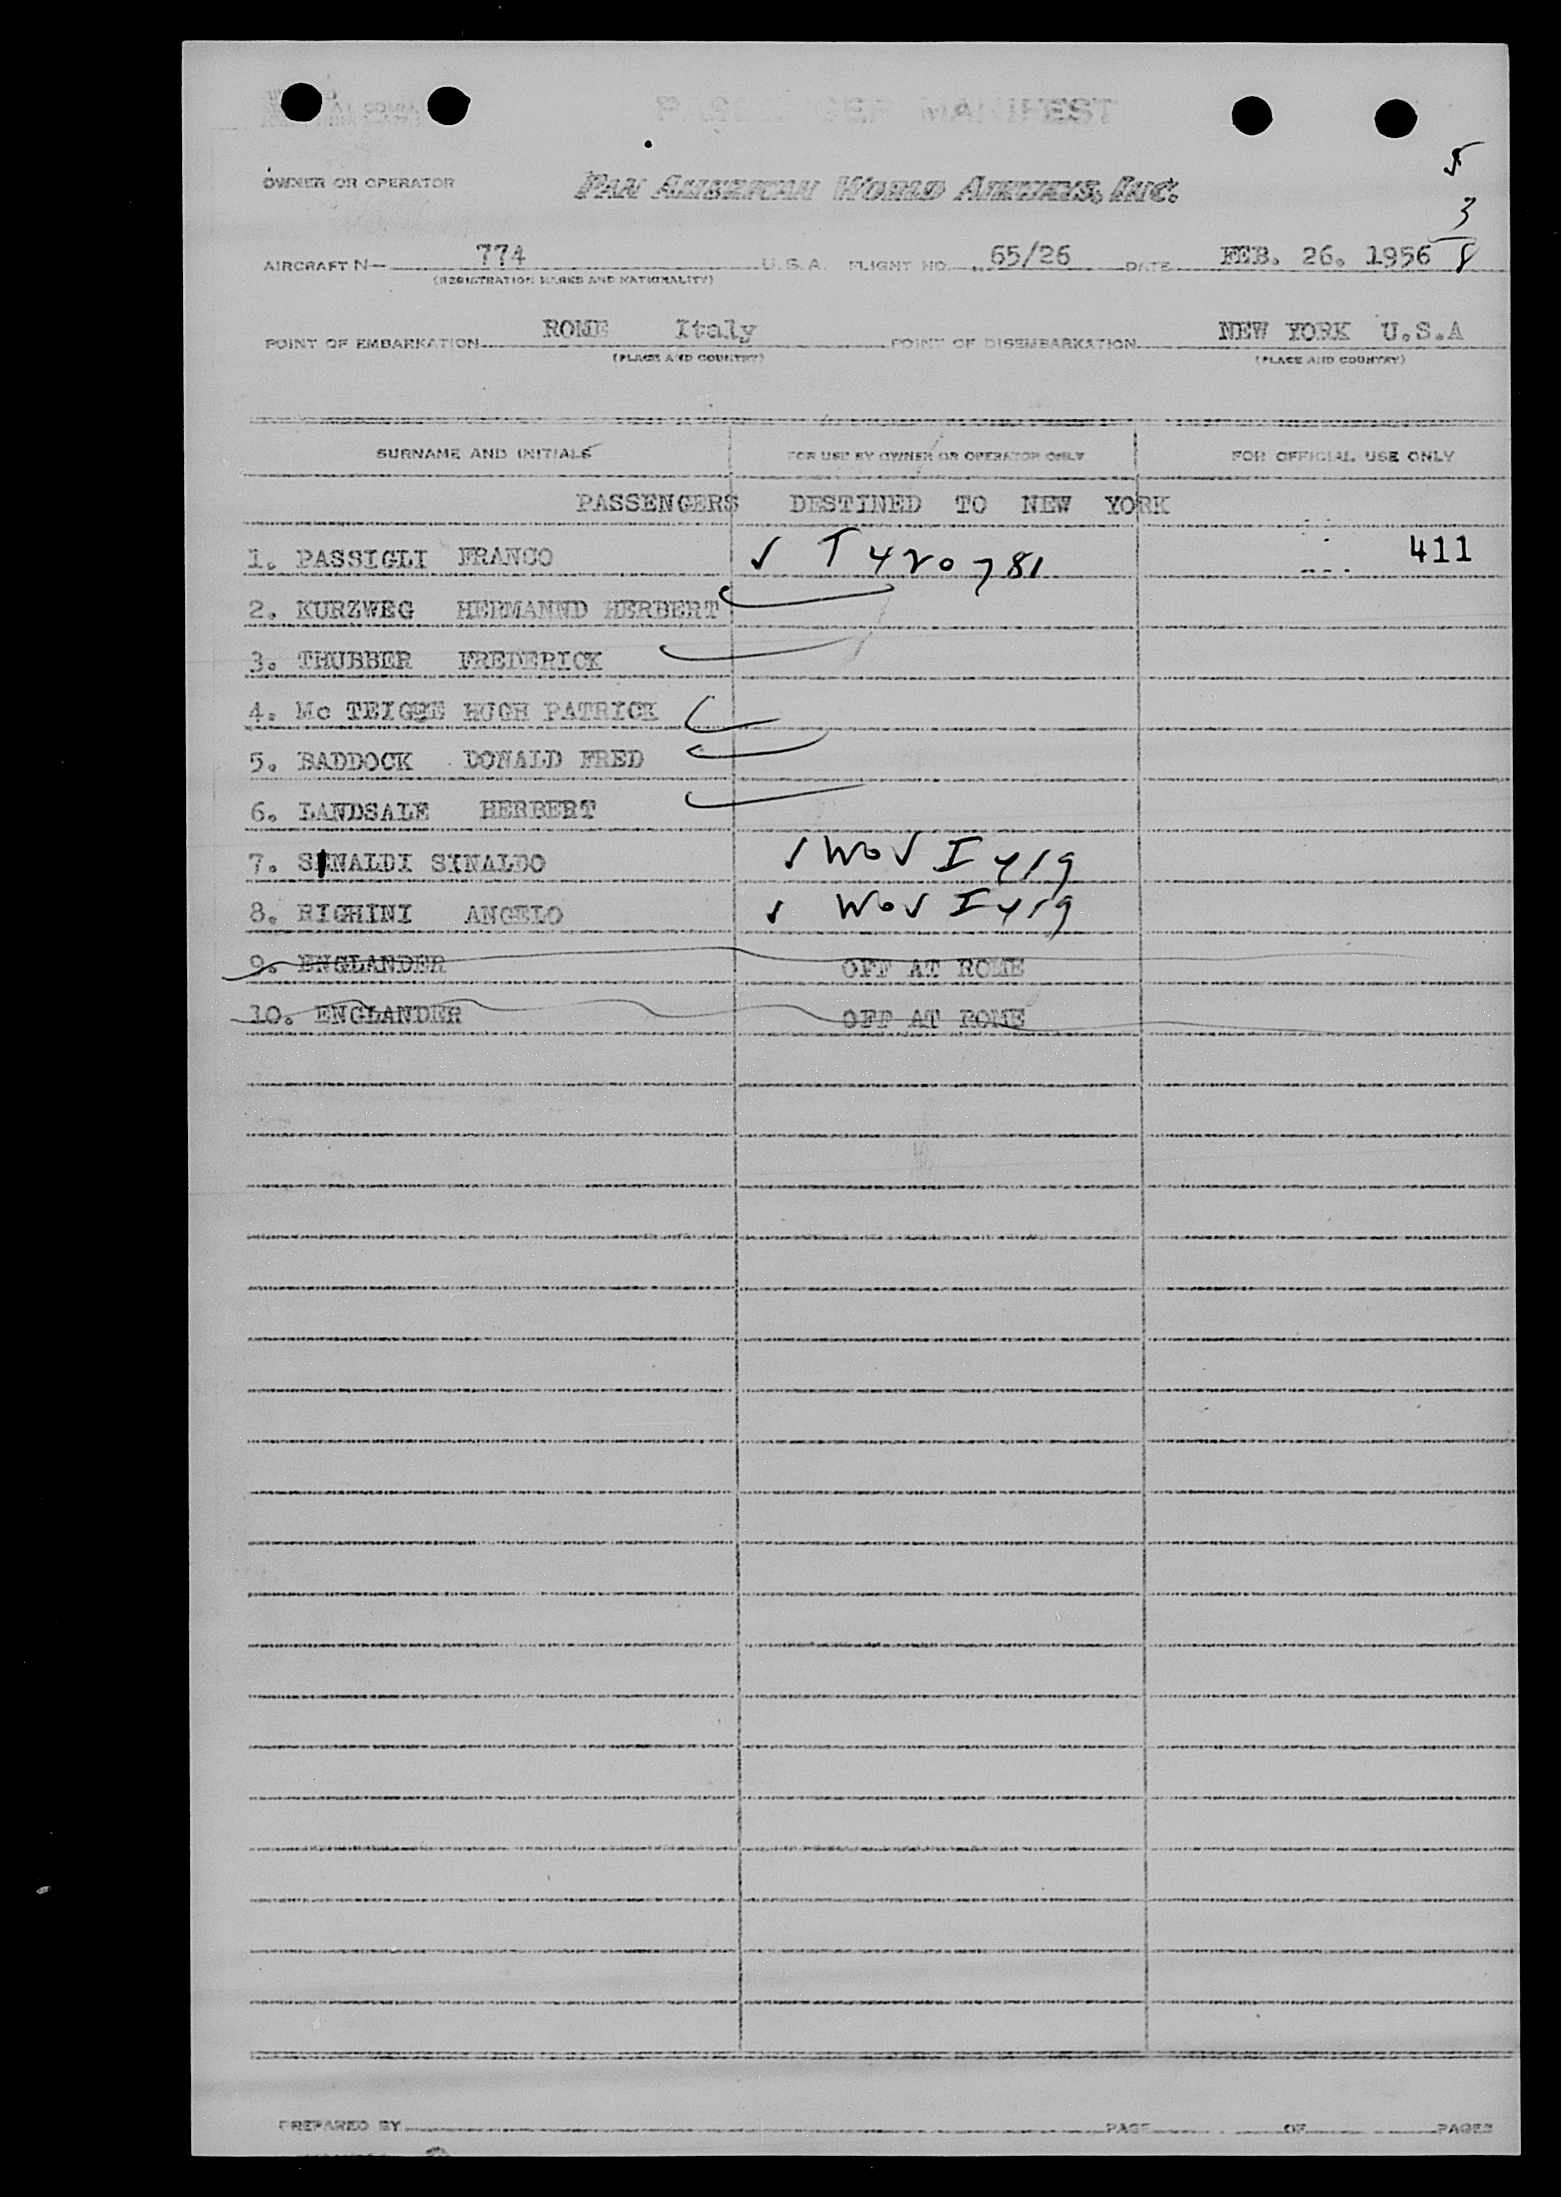 PASSENGER MANIFEST
5
OWNER OR OPERATOR PAN AMERICAN WORLD AIRWAYS, INC.
3
AIRCRAFT N- 774 U.S.A. FLIGHT NO. 65/26 DATE FEB. 26. 1956 8
(REGISTRATION MARKS AND NATIONALITY)
POINT OF EMBARKATION ROME Italy POINT OF DISEMBARKATION NEW YORK U.S.A
(PLACE AND COUNTRY) (PLACE AND COUNTRY)
SURNAME AND INITIALS FOR USE BY OWNER OR OPERATOR ONLY FOR OFFICIAL USE ONLY
PASSENGERS DESTINED TO NEW YORK
1. PASSIGLI FRANCO ✓ T 420781 411
2. KURZWEG HERMANND HERBERT ✓
3. THUBBER FREDERICK ✓
4. Mc TEIGUE HUGH PATRICK ✓
5. BADDOCK DONALD FRED ✓
6. LANDSALE HERBERT ✓
7. SINALDI SINALDO ✓ WOV I 419
8. RIGHINI ANGELO ✓ WOV I 419
9. ENGLANDER OFF AT ROME
10. ENGLANDER OFF AT ROME
PREPARED BY PAGE OF PAGES